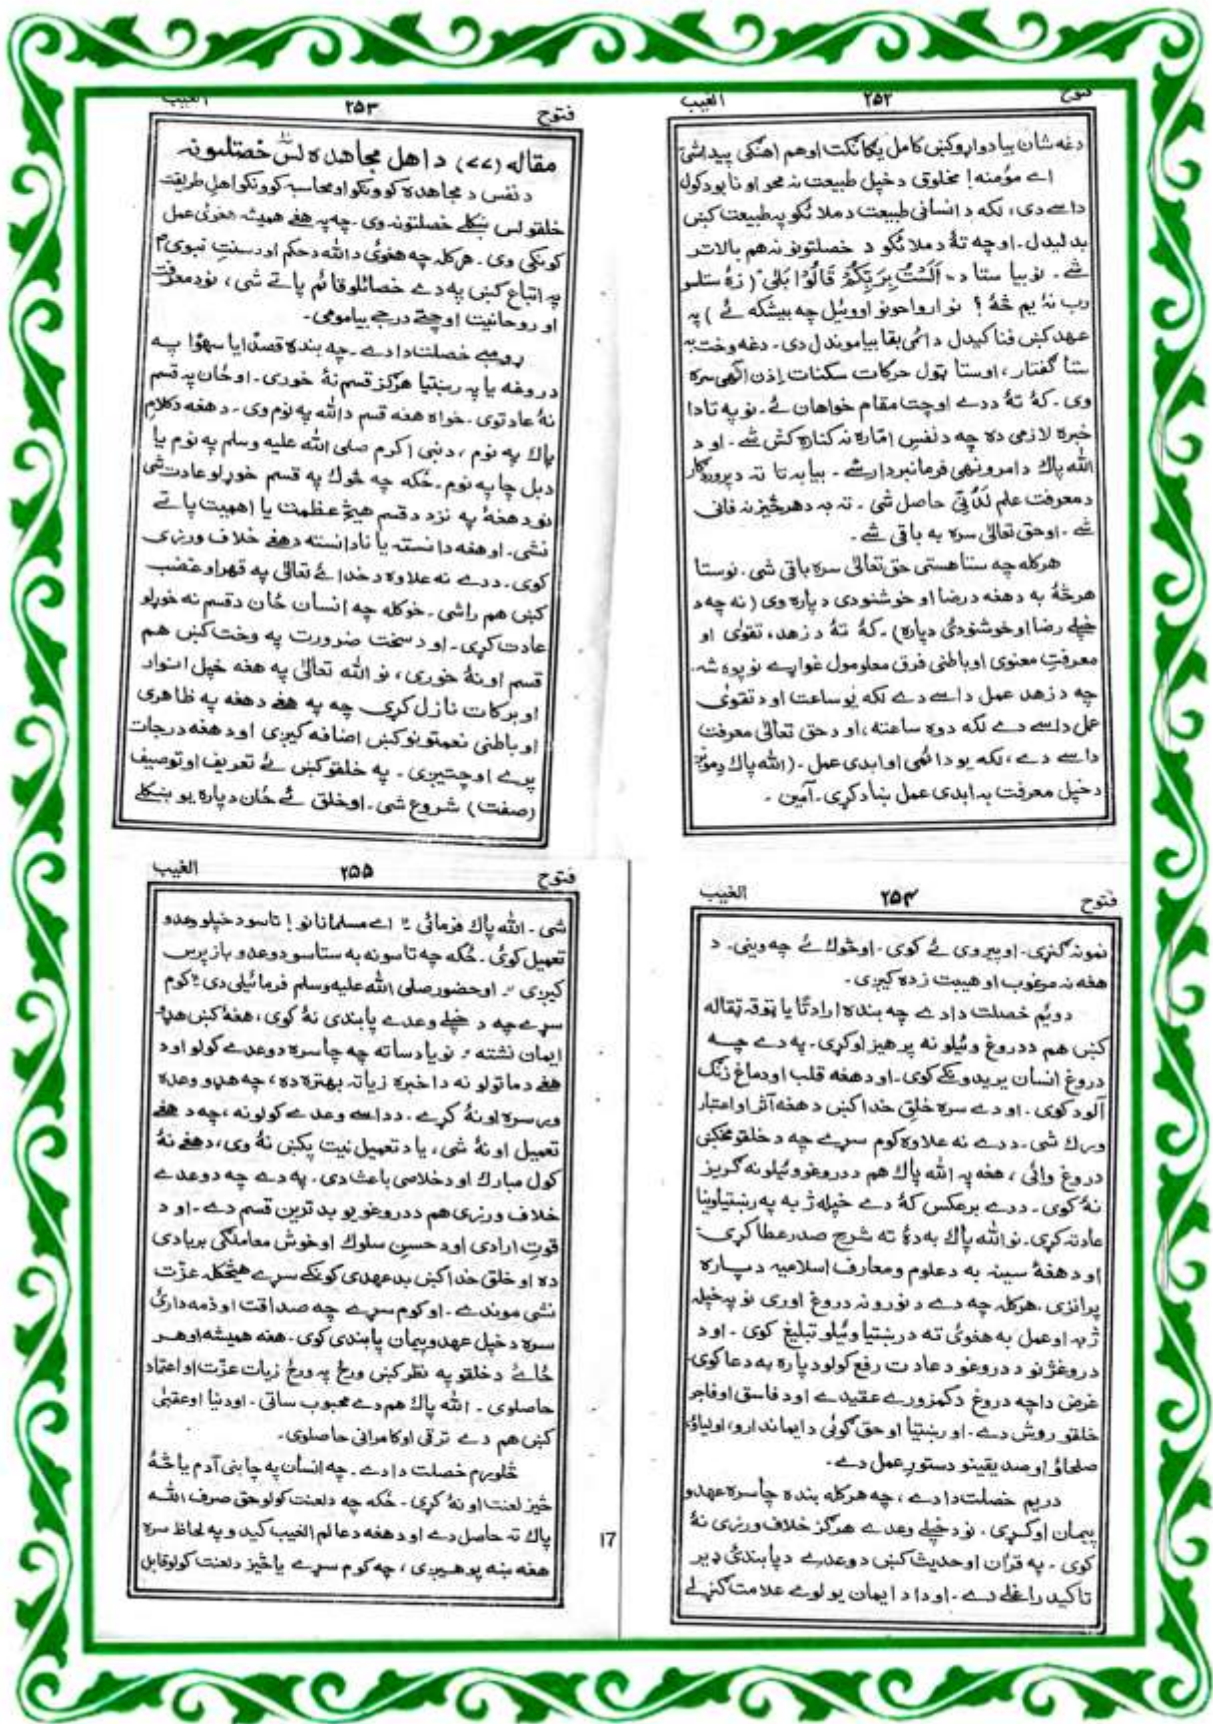 فتوح ۲۵۲ الغيب
دغه شان بيا دواړو کښې کامل يگانگت او هم اهنگی پيدا شی
اے مؤمنه! مخلوق د خپل طبيعت نه محو او نابود کول
داسے دی، لکه د انسانی طبيعت د ملائکو په طبيعت کښې
بدليدل۔ او چه تهٔ د ملائکو د خصلتونو نه هم بالاتر
شے ۔ نو بيا ستا د ۔ اَلَسْتُ بِرَبِّكُمْ قَالُوْا بَلٰی ( زهٔ ستاسو
رب نهٔ يم څهٔ ؟ نو ارواحونو اووئيل چه بيشکه ئے ) په
عهد کښې فنا کيدل دائمی بقا بيا موندل دی۔ دغه وخت به
ستا گفتار، او ستا ټول حرکات سکنات اِذن الٰهی سره
وی۔ کهٔ تهٔ ددے اوچت مقام خواهان ئے۔ نو په تا دا
خبره لازمی ده چه د نفسِ امّاره نه کناره کش شے ۔ او د
الله پاک د امر و نهی فرمانبردار شے ۔ بيا به تا ته د پروردگار
د معرفت علم لَدُنّی حاصل شی ۔ ته به د هر څيز نه فانی
شے ۔ او حق تعالٰی سره به باقی شے ۔
هر کله چه ستا هستی حق تعالٰی سره باقی شی۔ نو ستا
هر څهٔ به د هغه د رضا او خوشنودی د پاره وی ( نه چه د
خپلے رضا او خوشنودئ دپاره) ۔ کهٔ تهٔ د زهد، تقوٰی او
معرفتِ معنوی او باطنی فرق معلومول غواړے نو پوه شه
چه د زهد عمل داسے دے لکه يو ساعت او د تقوٰی
عمل داسے دے لکه دوه ساعته، او د حق تعالٰی معرفت
داسے دے، لکه يو دائمی او ابدی عمل ۔ (الله پاک د مونږ
د خپل معرفت به ابدی عمل ښاد کړی۔ آمين ۔
فتوح ۲۵۳ الغيب
مقاله (۷۷) د اهل مجاهده لس خصلتونه
د نفس د مجاهده کوونکو او محاسبه کوونکو اهلِ طريقت
خلقو لس ښکلے خصلتونه وی۔ چه په هغے هميشه هغوئ عمل
کوونکی وی ۔ هر کله چه هغوئ د الله د حکم او د سنتِ نبوی
په اتباع کښې په دے خصائلو قائم پاتے شی، نو د معرفت
او روحانيت اوچتے درجے بيامومی۔
ړومبے خصلت دا دے۔ چه بنده قصدًا يا سهوًا په
دروغه يا په رښتيا هرگز قسم نهٔ خوری۔ او ځان په قسم
نهٔ عادتوی۔ خواه هغه قسم د الله په نوم وی۔ د هغه د کلامِ
پاک په نوم، د نبی اکرم صلی الله عليه وسلم په نوم يا
د بل چا په نوم۔ ځکه چه څوک په قسم خوړلو عادت شی
نو د هغهٔ په نزد د قسم هيڅ عظمت يا اهميت پاتے
نشی۔ او هغه دانسته يا نادانسته د هغے خلاف ورزی
کوی۔ ددے نه علاوه د خدائے تعالٰی په قهر او غضب
کښې هم راشی۔ خو کله چه انسان ځان د قسم نه خوړلو
عادت کړی۔ او د سخت ضرورت په وخت کښې هم
قسم اونهٔ خوری، نو الله تعالٰی په هغه خپل انوار
او برکات نازل کړی چه په هغے د هغه په ظاهری
او باطنی نعمتونو کښې اضافه کيږی او د هغه درجات
پرے اوچتيږی ۔ په خلقو کښې ئے تعريف او توصيف
(صفت) شروع شی۔ او خلق ئے ځان دپاره يو ښکلے
فتوح ۲۵۴ الغيب
نمونه گنړی۔ او پيروی ئے کوی۔ او څوک ئے چه وينی۔ د
هغه نه مرغوب او هيبت زده کيږی۔
دويم خصلت دا دے چه بنده ارادتًا يا ټوقه ټقاله
کښې هم د دروغ وئيلو نه پرهيز اوکړی۔ په دے چه
دروغ انسان بريدونکے کوی۔ او د هغه قلب او دماغ زنگ
آلود کوی۔ او دے سره خلقِ خدا کښې د هغه آثر او اعتبار
ورک شی۔ ددے نه علاوه کوم سړے چه د خلقو مخکښې
دروغ وائی، هغه په الله پاک هم د دروغو وئيلو نه گريز
نهٔ کوی۔ ددے برعکس کهٔ دے خپله ژبه په رښتيا وئيا
عادته کړی۔ نو الله پاک به دهٔ ته شرح صدر عطا کړی
او د هغهٔ سينه به د علوم ومعارف اسلاميه دپاره
پرانزی۔ هر کله چه دے د نورو نه دروغ اوری نو په خپله
ژبه او عمل به هغوئ ته د رښتيا وئيلو تبليغ کوی ۔ او د
دروغژنو د دروغو د عادت رفع کولو دپاره به دعا کوی
غرض دا چه دروغ د کمزورے عقيدے او د فاسق او فاجر
خلقو روش دے۔ او رښتيا او حق گوئی د ايماندارو، اولياؤ،
صلحاؤ او صديقينو دستورِ عمل دے۔
دريم خصلت دا دے، چه هر کله بنده چا سره عهد و
پيمان اوکړی۔ نو د خپلے وعدے هرگز خلاف ورزی نهٔ
کوی ۔ په قرآن او حديث کښې د وعدے د پابندئ ډير
تاکيد راغلے دے۔ او دا د ايمان يو لوے علامت گنړلے
فتوح ۲۵۵ الغيب
شی ۔ الله پاک فرمائی " اے مسلمانانو! تاسو د خپلو وعدو
تعميل کوئ ۔ ځکه چه تاسو نه به ستاسو د وعدو بازپرس
کيږی "۔ او حضور صلی الله عليه وسلم فرمائيلی دی "کوم
سړے چه د خپلے وعدے پابندی نهٔ کوی، هغهٔ کښې هډو
ايمان نشته" نو ياد ساته چه چا سره د وعدے کولو او د
هغے د ماتولو نه دا خبره زياته بهتره ده، چه هډو وعده
ورسره اونهٔ کړے۔ د داسے وعدے کولو نه، چه د هغے
تعميل اونهٔ شی، يا د تعميل نيت پکښې نهٔ وی، د هغے نهٔ
کول مبارک او د خلاصی باعث دی۔ په دے چه د وعدے
خلاف ورزی هم د دروغو يو بدترين قسم دے۔ او د
قوتِ ارادی او د حسنِ سلوک او خوش معاملگی بربادی
ده او خلقِ خدا کښې بدعهدی کونکے سړے هيڅکله عزّت
نشی موندے۔ او کوم سړے چه صداقت او ذمه دارئ
سره د خپل عهد و پيمان پابندی کوی۔ هغه هميشه او هر
ځائے د خلقو په نظر کښې ورځ په ورځ زيات عزّت او اعتماد
حاصلوی ۔ الله پاک هم دے محبوب ساتی ۔ او دنيا او عقبٰی
کښې هم دے ترقی او کامرانی حاصلوی۔
څلورم خصلت دا دے ۔ چه انسان په چا بنی آدم يا څهٔ
څيز لعنت اونهٔ کړی ۔ ځکه چه د لعنت کولو حق صرف الله
پاک ته حاصل دے او د هغه د عالم الغيب کيدو په لحاظ سره
هغه ښه پوهيږی، چه کوم سړے يا څيز د لعنت کولو قابل
17